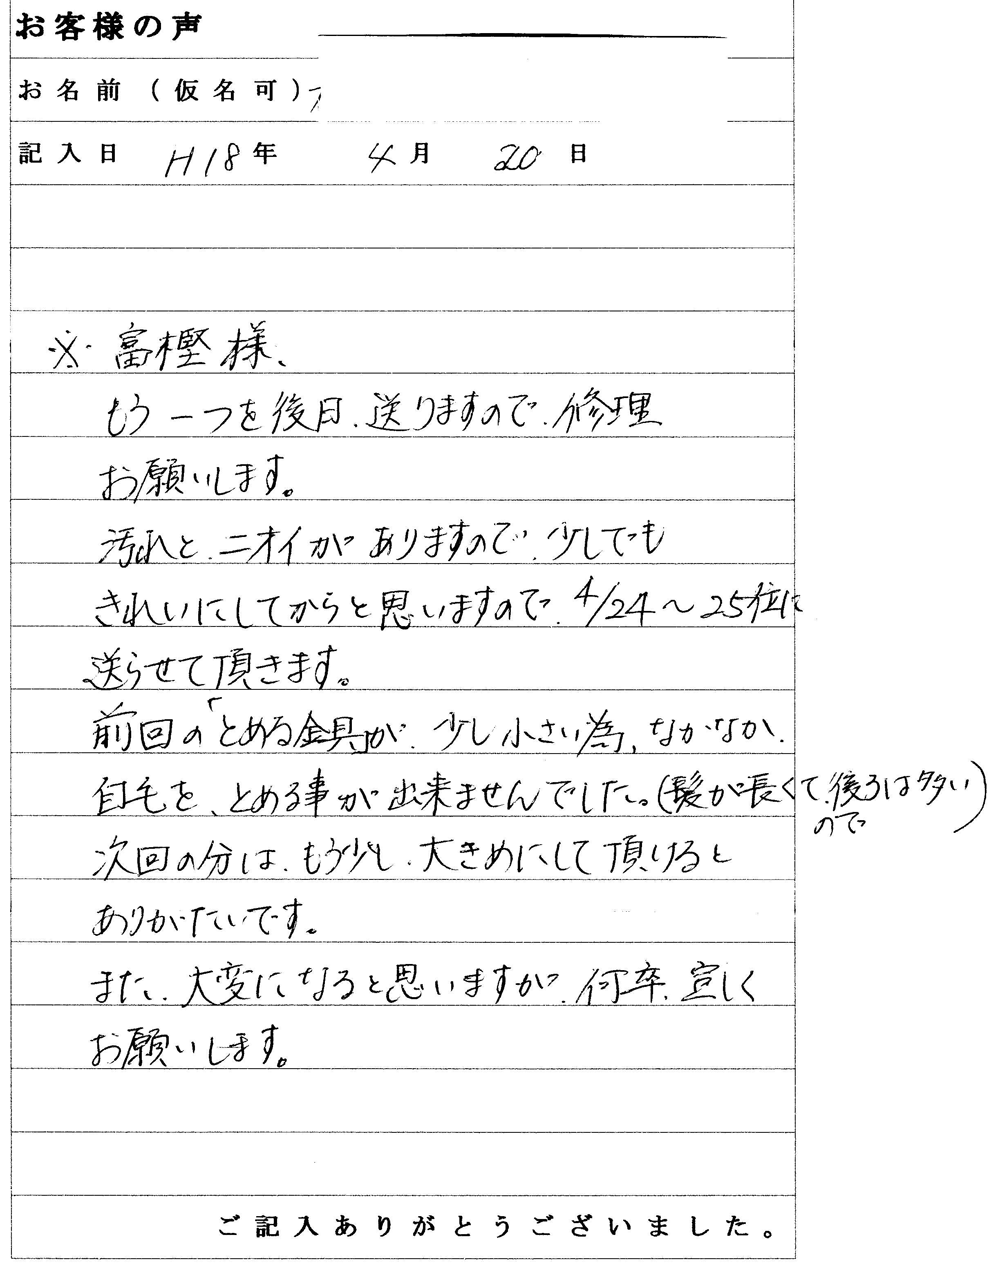 お客様の声
お名前(仮名可)
記入日 H18年 4月 20日
※ 富樫様、
もう一つを後日、送りますので、修理
お願いします。
汚れと、ニオイがありますので、少しでも
きれいにしてからと思いますので、4/24～25位に
送らせて頂きます。
前回の「とめる金具」が、少し小さい為、なかなか、
自毛を、とめる事が出来ませんでした。(髪が長くて、後ろは多い
ので)
次回の分は、もう少し、大きめにして頂けると
ありがたいです。
また、大変になると思いますが、何卒、宜しく
お願いします。
ご記入ありがとうございました。